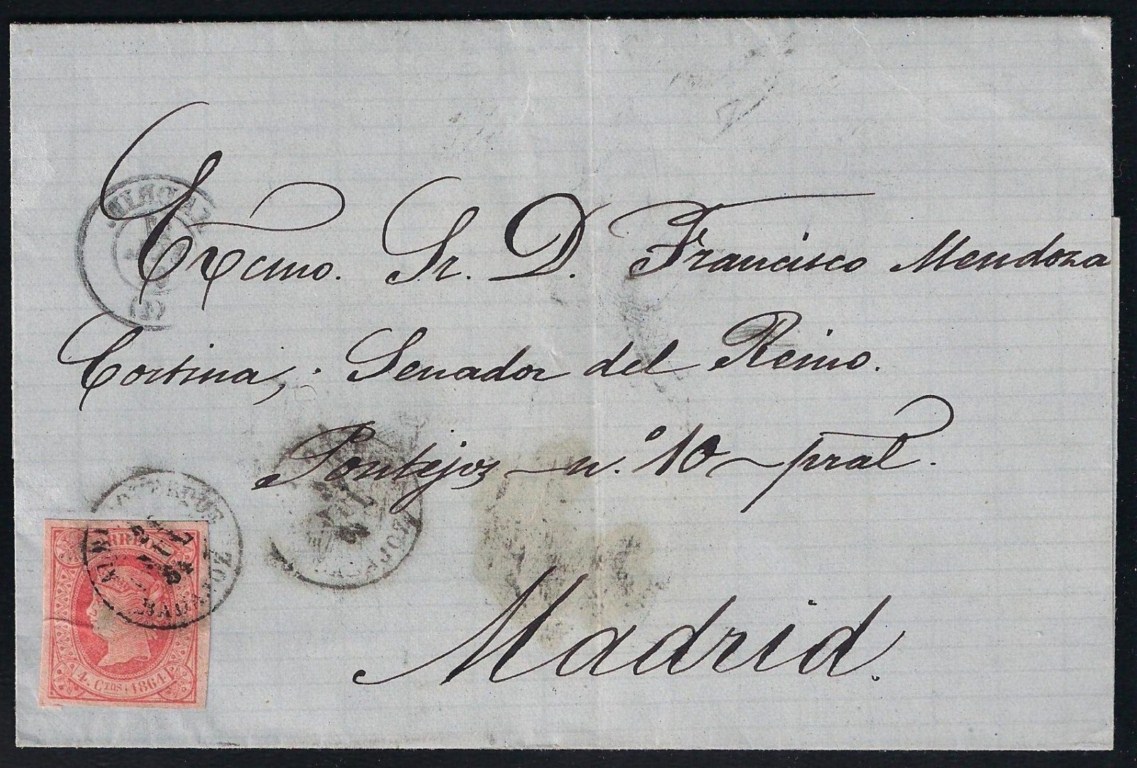 Excmo. Sr. D. Francisco Mendoza
Cortina, Senador del Reino.
Pontejos - n.º 10 - pral.
Madrid.
CORREOS
4 Ctos 1864